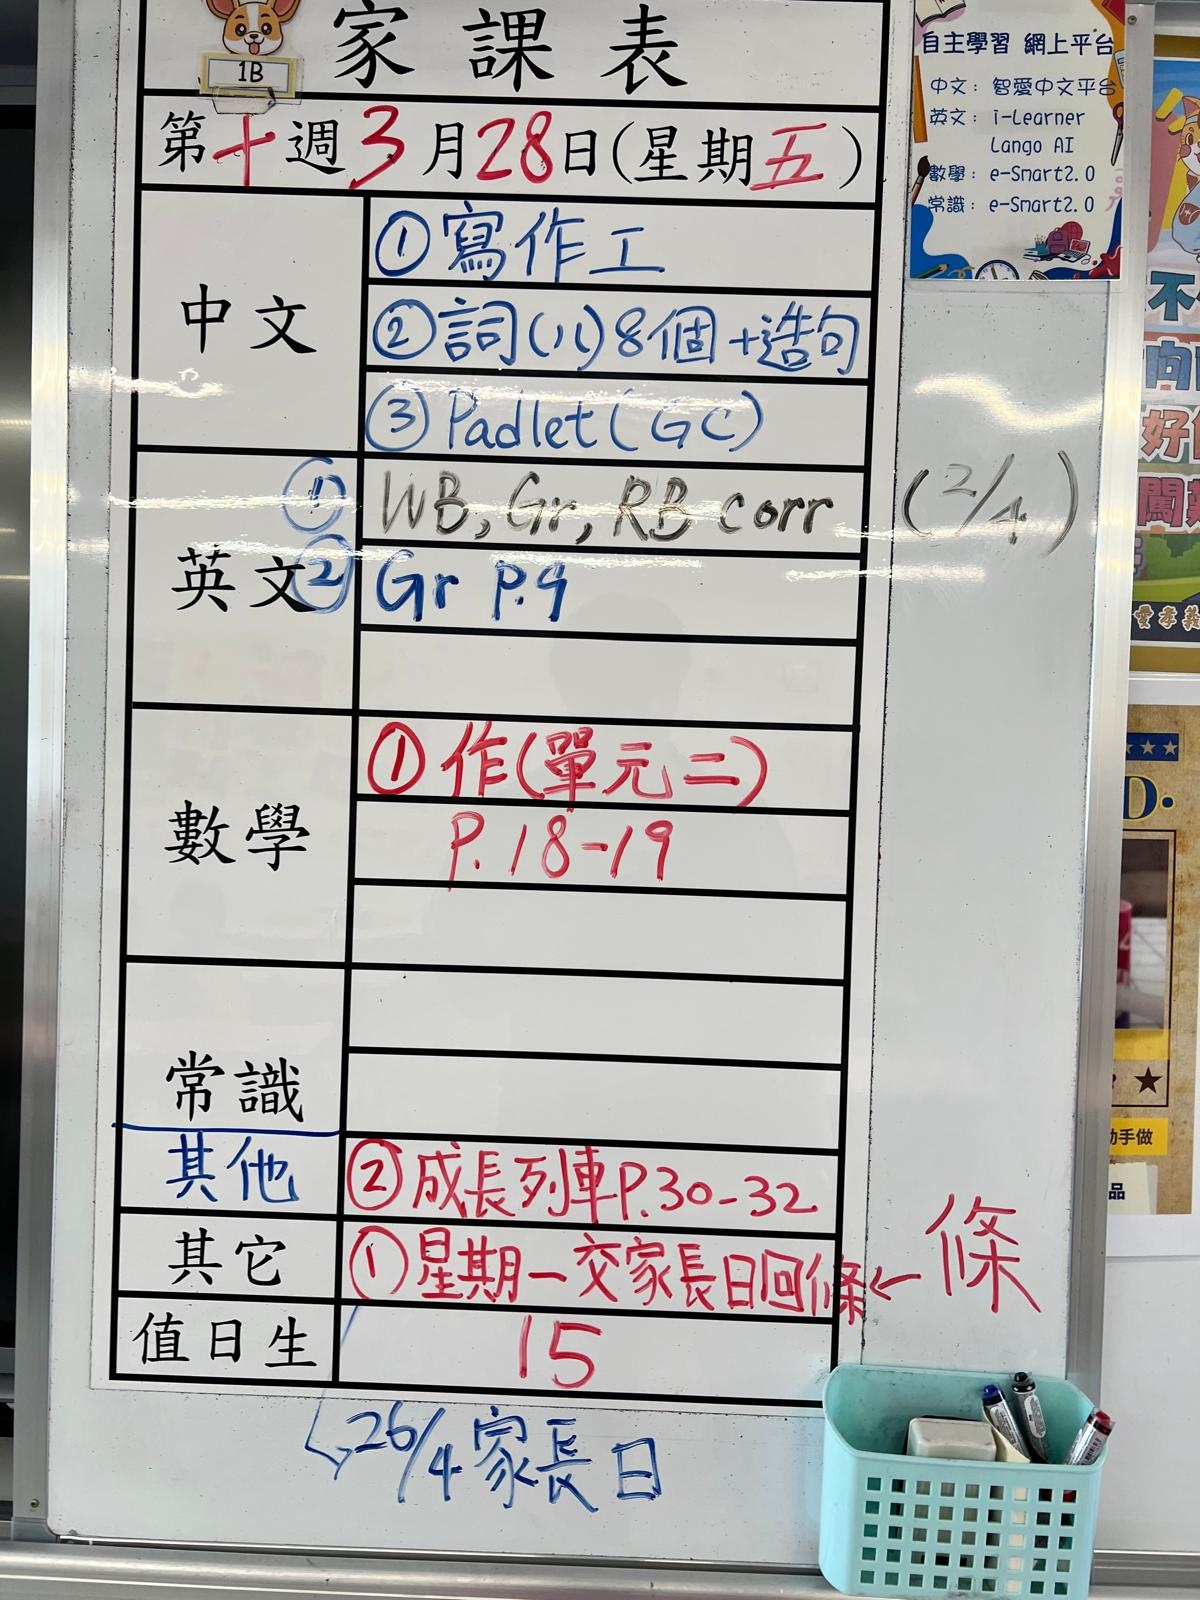 家課表
1B
第十週3月28日(星期五)
中文
①寫作工
②詞(八)8個+造句
③Padlet(GC)
英文
① WB, Gr, RB corr (2/4)
② Gr P.9
數學
①作(單元二)
P.18-19
常識
其他
②成長列車P.30-32
其它
①星期一交家長日回條←條
值日生
15
26/4家長日
自主學習 網上平台
中文: 智愛中文平台
英文: i-Learner
Lango AI
數學: e-Smart2.0
常識: e-Smart2.0
不
向
好
闖
愛孝義
D·
動手做
品